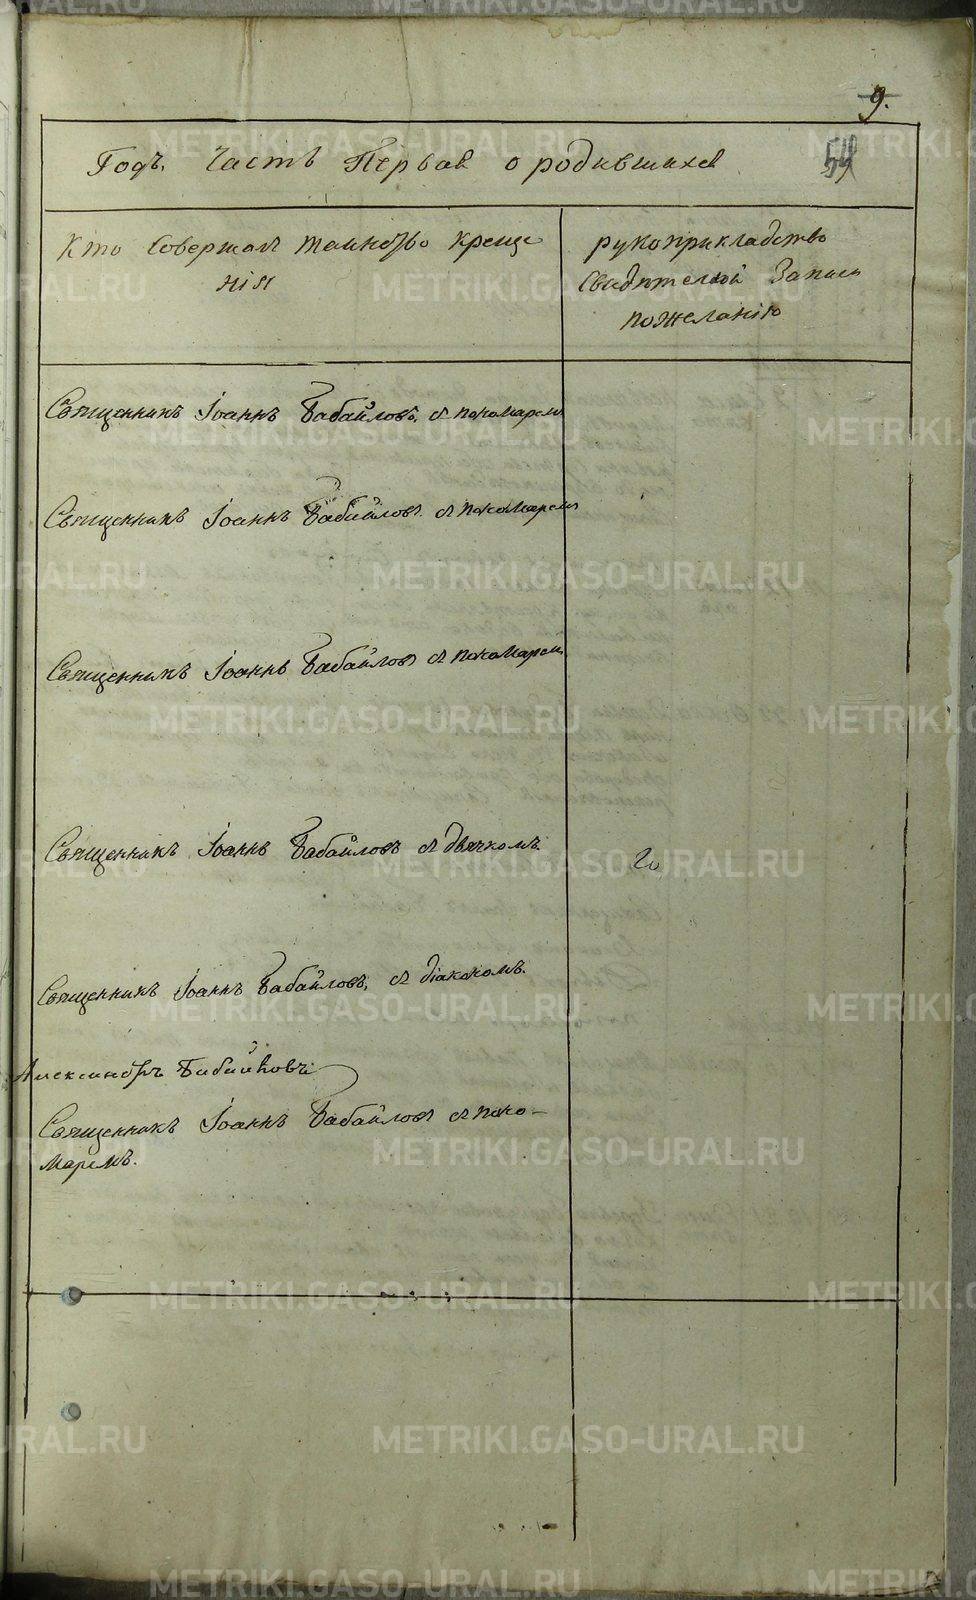 9.
Годъ. Часть Первая о родившихся
59
Кто Совершал таинство креще
нія
рукоприкладство
Свидетелей Записи
пожеланію
Священникъ Іоаннъ Бабайловъ. съ пономаремъ
Священникъ Іоаннъ Бабайловъ. съ пономаремъ
Священникъ Іоаннъ Бабайловъ съ пономаремъ
Священникъ Іоаннъ Бабайловъ съ дьячкомъ
Священникъ Іоаннъ Бабайловъ, съ діакономъ.
Александръ
Священникъ Іоаннъ Бабайловъ съ поно-
маремъ.
METRIKI.GASO-URAL.RU